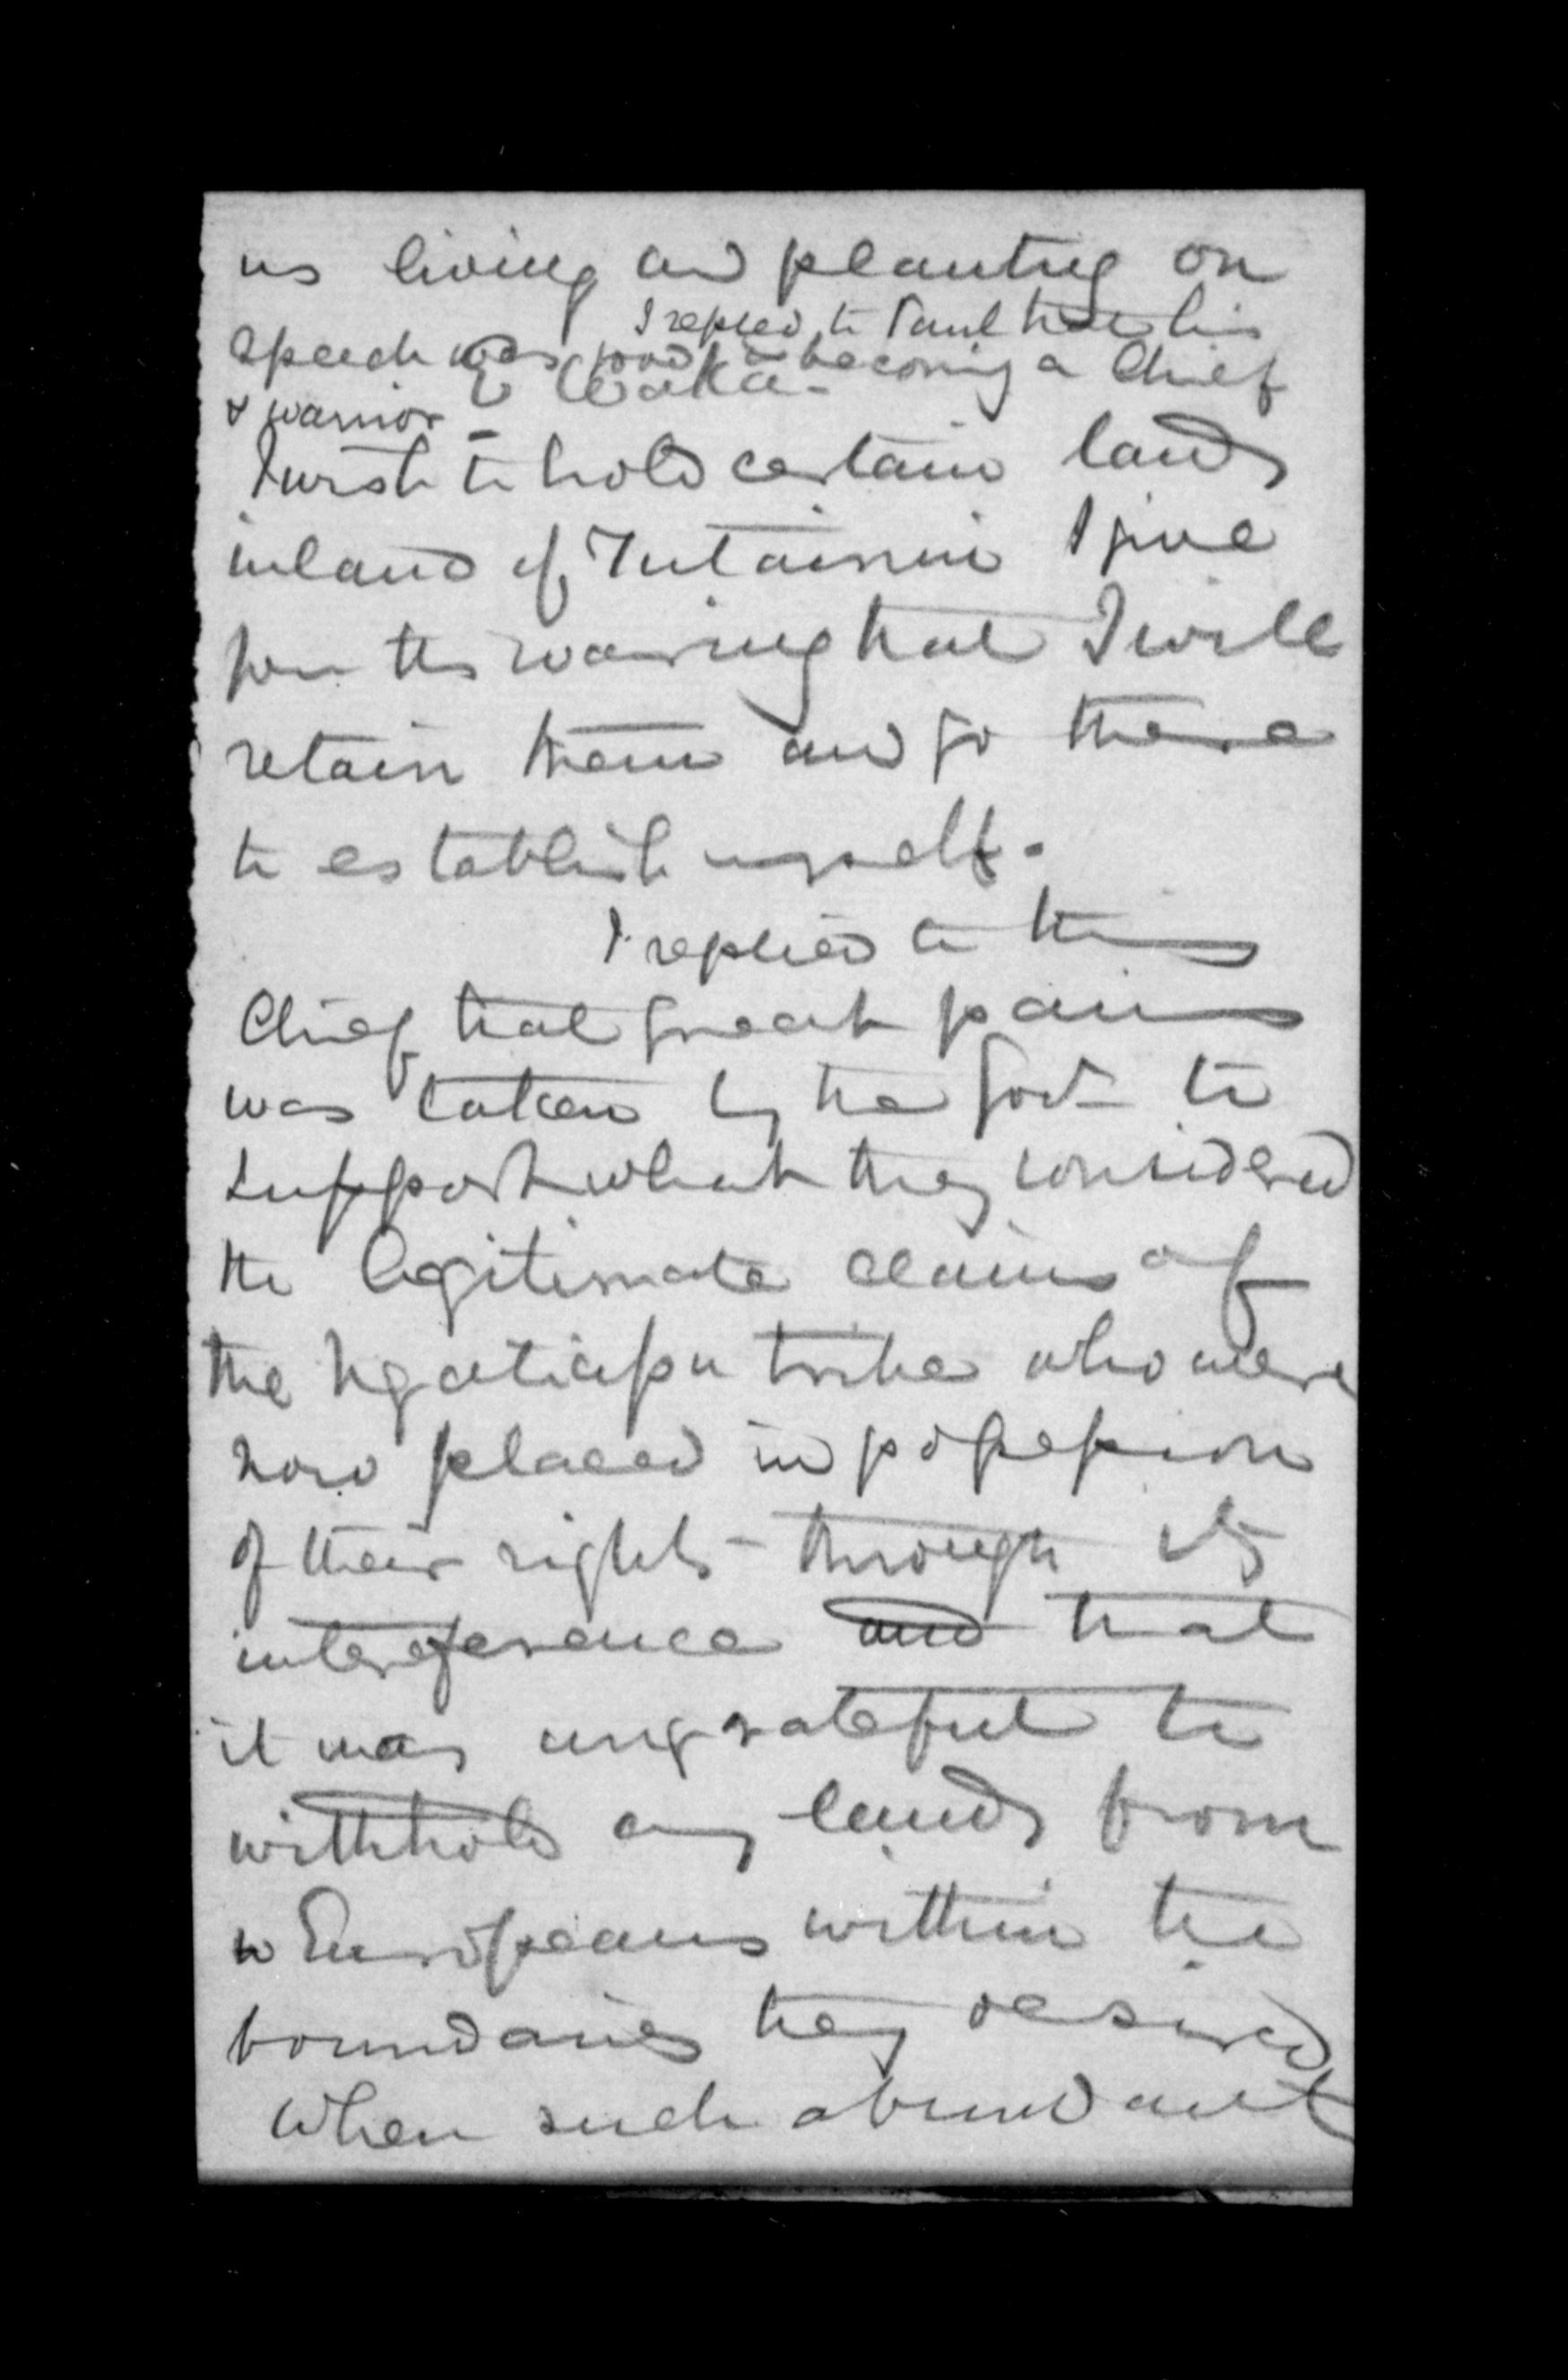 us living and planting on
I replied to Paul that his
speech was good & becoming a Chief
& warrior
E Waka -
I wish to hold certain lands
inland of I give
you this warning that I will
retain them and go there
to establish myself.
I replied to this
Chief that great pains
was taken by the Govt to
support what they considered
the legitimate claims of
the Ngatiapa tribe who were
now placed in possession
of their rights through its
intereference and that
it was ungrateful to
withhold any lands from
Europeans within the
boundaries they desired
When such abundant